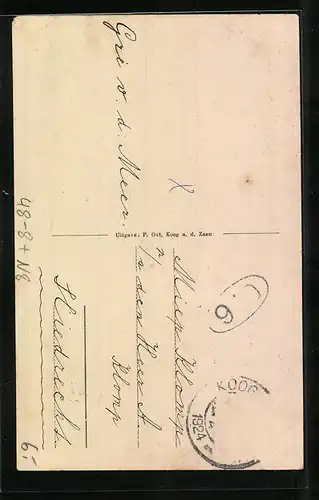 Gri v. d. Meer.
X
Uitgave: P. Out, Koog a. d. Zaan
Miep Klomp
p/a den Heer A.
Klomp
Sliedrecht
6
KOOG
1924
48-8+N8
6.-